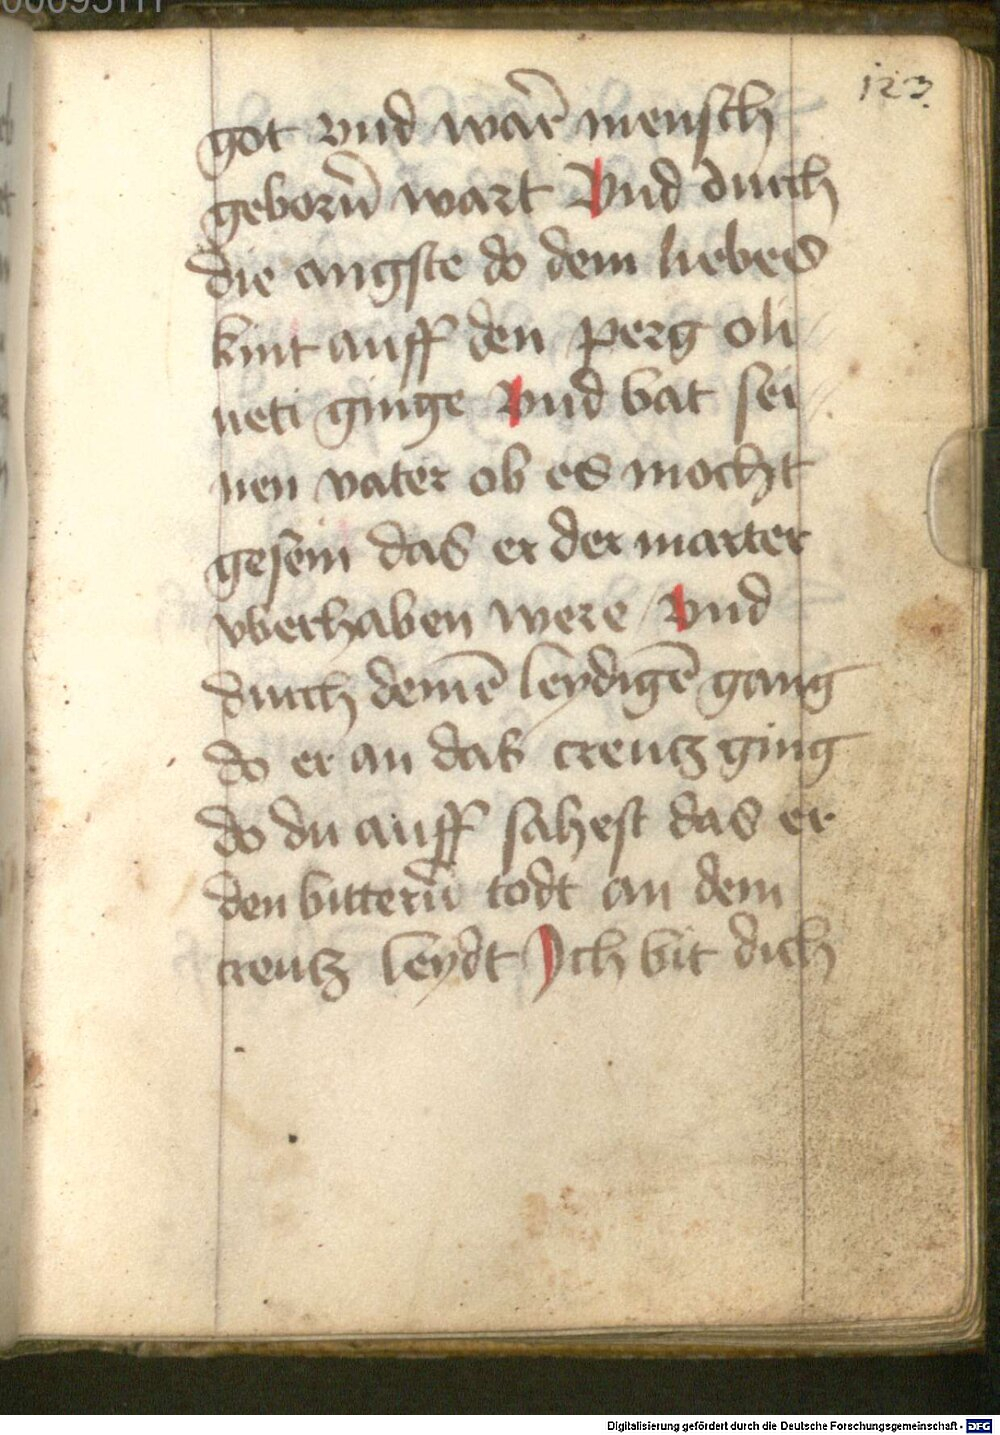 123
got vnd warẽ mensch
geborñ wart Vnd durch
die angste do dem liebes
kint auff den perg oli
ueti ginge Vnd bat sei
nen vater ob es mocht
gesein das er der marter
vberhaben were / Vnd
durch deinẽ leydigẽ gang
do er an das creutz ging
do du auff sahest das er
den bitterñ todt an dem
creutz leydt Ich bit dich
Digitalisierung gefördert durch die Deutsche Forschungsgemeinschaft - DFG